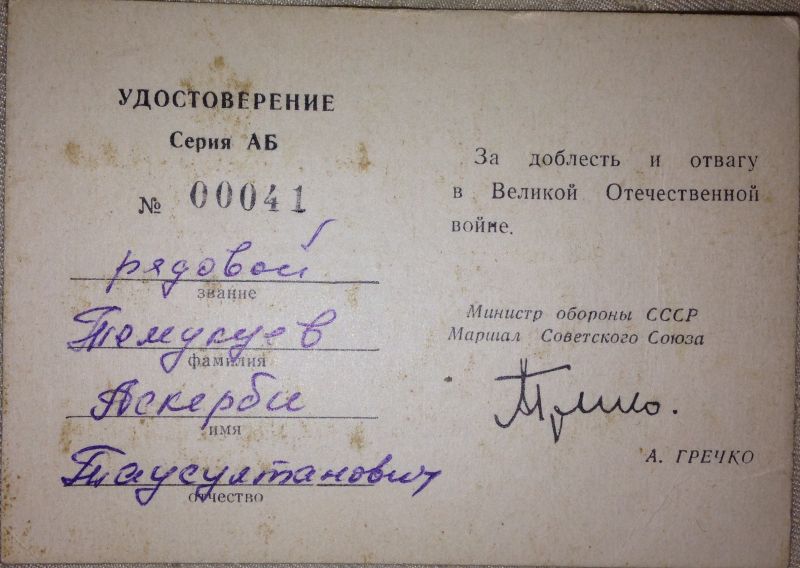 УДОСТОВЕРЕНИЕ
Серия АБ
№ 00041
рядовой
звание
Темукуев
фамилия
Аскерби
имя
Таусултанович
отчество
За доблесть и отвагу
в Великой Отечественной
войне.
Министр обороны СССР
Маршал Советского Союза
А. ГРЕЧКО